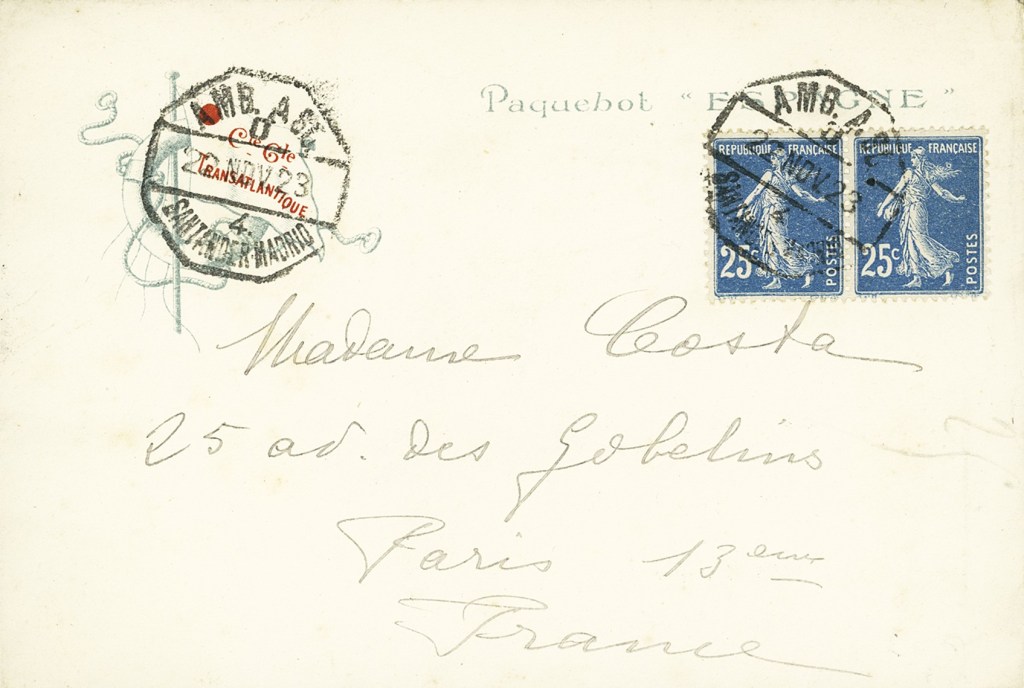 Paquebot "ESPAGNE"
AMB. ASE.
D
Cie Gle
TRANSATLANTIQUE
22 NOV. 23
4.
SANTANDER-MADRID
AMB. A
22 NOV. 23
4
REPUBLIQUE FRANÇAISE
25c
POSTES
REPUBLIQUE FRANÇAISE
25c
POSTES
Madame Costa
25 av. des Gobelins
Paris 13eme
France